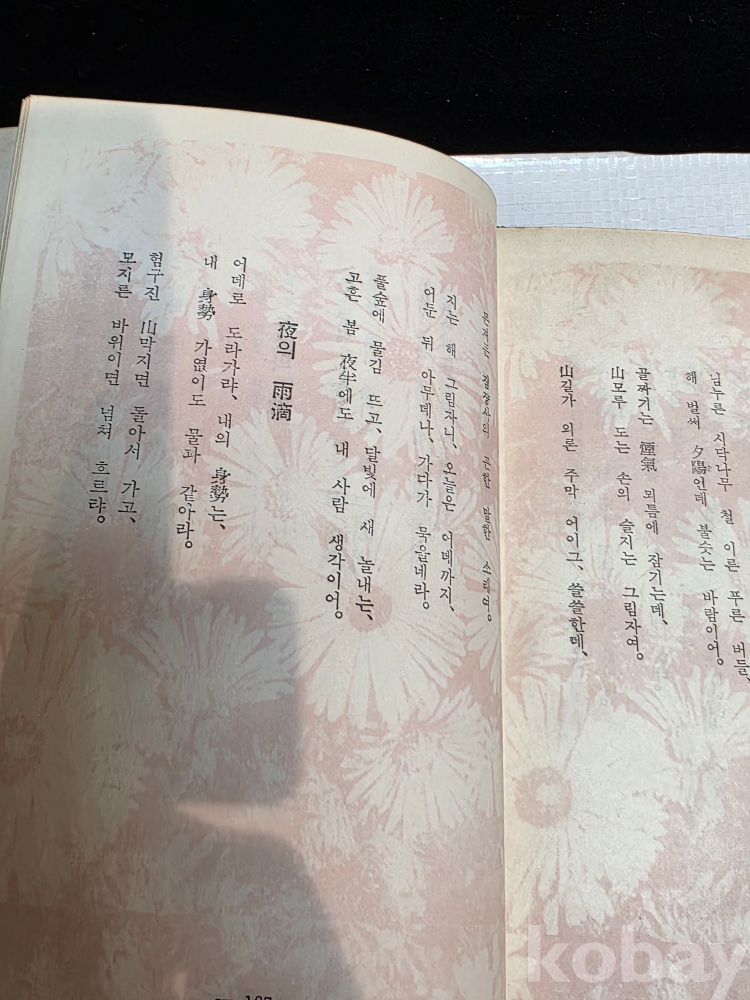 님누른 시닥나무 철 이른 푸른 버들、
해 벌써 夕陽언데 불숫는 바람이어。
골짜기는 煙氣 뫼틈에 잠기는데、
山모루 도는 손의 슬지는 그림자여。
山길가 외론 주막 어이그、쓸쓸한데、
먼저든 짐장사의 곤한 말한 소리여。
지는 해 그림자니、오늘은 어데까지、
어둔 뒤 아무데나、가다가 묵을네라。
풀숲에 물김 뜨고、달빛에 새 놀내는、
고흔 봄 夜半에도 내 사람 생각이어。
夜의 雨滴
어데로 도라가랴、내의 身勢는、
내 身勢 가엾이도 물과 같아라。
험구진 山막지면 돌아서 가고、
모지른 바위이면 넘쳐 흐르랴。
kobay